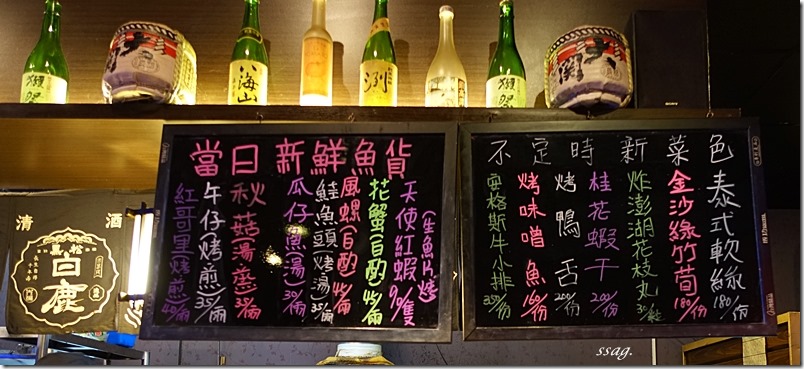 獺祭
八海山
洌
獺祭
SONY
當日新鮮魚貨
天使紅蝦(生魚片烤) 90/隻
花蟹(白酌) 45/兩
風螺(白酌) 45/兩
鮭魚頭(烤湯) 35/兩
瓜仔魚(湯) 30/兩
秋菇(湯煎) 35/兩
午仔烤煎 35/兩
紅哥里(烤煎) 40/兩
不定時新菜色
泰式軟絲 180/份
金沙綠竹筍 180/份
炸澎湖花枝丸
桂花蝦干 200/份
烤鴨舌 200/份
烤味噌魚 160/份
安格斯牛小排 350/份
清酒
白鹿
ssag.